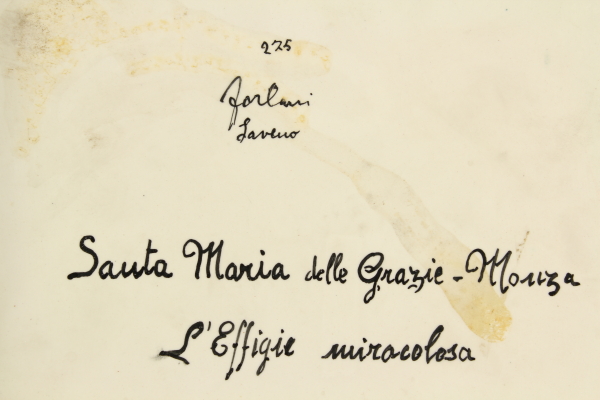 275
Forlani
Laveno
Santa Maria delle Grazie - Monza
L'Effigie miracolosa